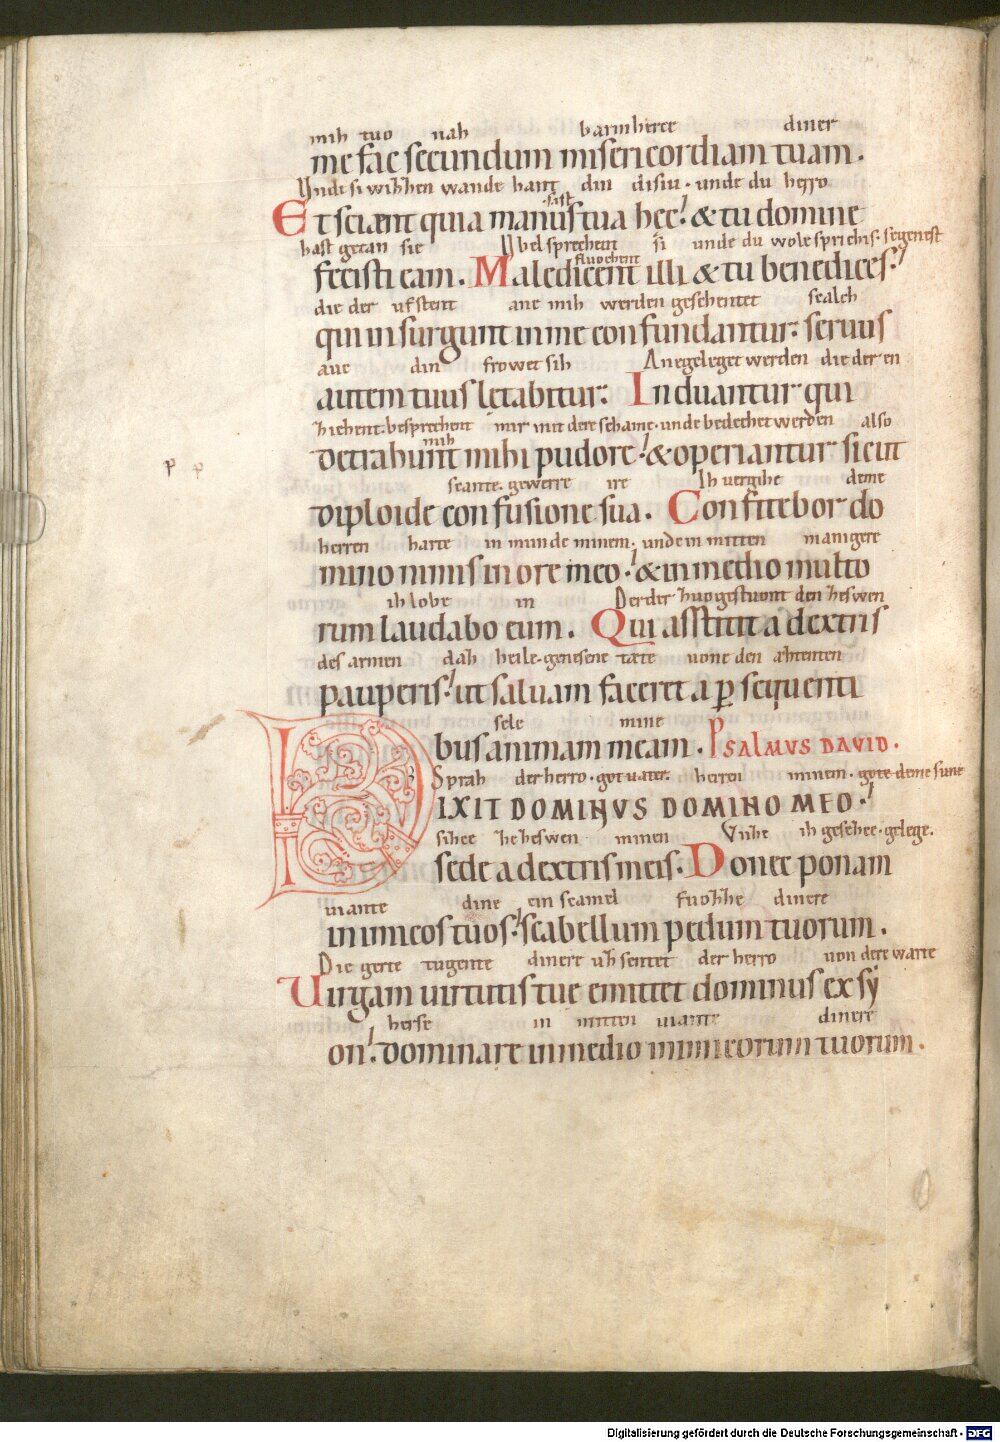 mih tuo nah barmherce diner
me fac secundum misericordiam tuam.
Unde si wizzen wande hant din disiu. unde du herro
.hast
Et sciant quia manus tua hęc! & tu domine
hast getan sie Ubel sprechent si unde du wole sprichis. segenest
fluochent
fecisti eam. Maledicent illi & tu benedices!
die der ufstent ane mih werden geschentet scalch
qui insurgunt in me confundantur: seruus
aue din frowet sih Anegeleget werden die der en
autem tuus lętabitur: Induantur qui
ziehent. besprechent mir mit dere schame. unde bedechet werden also
mih
detrahunt mihi pudore! & operiantur sicut
scante. gewerre ire Ih vergihe deme
diploide confusione sua. Confitebor do
herren harte in munde minem. unde in mitten manigere
mino nimis in ore meo! & in medio multo
ih lobe in Der der zuogestuont den zeswen
rum laudabo eum. Qui asstitit a dextris
des armen daz heile. genesene tæte vone den ahtenten
pauperis! ut saluam faceret a p̱ sequenti
sele mine
bus animam meam. PSALMVS DAVID.
Sprah der herro. got uater. herren minem. gote deme sune
DIXIT DOMINVS DOMINO MEO!
sizce ze zeswen minen Unze ih gesezce. gelege.
sede a dextris meis. Donec ponam
viante dine ein scamel fuozze dinere
inimicos tuos! scabellum pedum tuorum.
Die gerte tugente dinere uzsentet der herro von dere warte
Uirgam uirtutis tuę emittet dominus ex sy
herse in mitten viante dinere
on! dominare in medio inimicorum tuorum.
p p
Digitalisierung gefördert durch die Deutsche Forschungsgemeinschaft - DFG